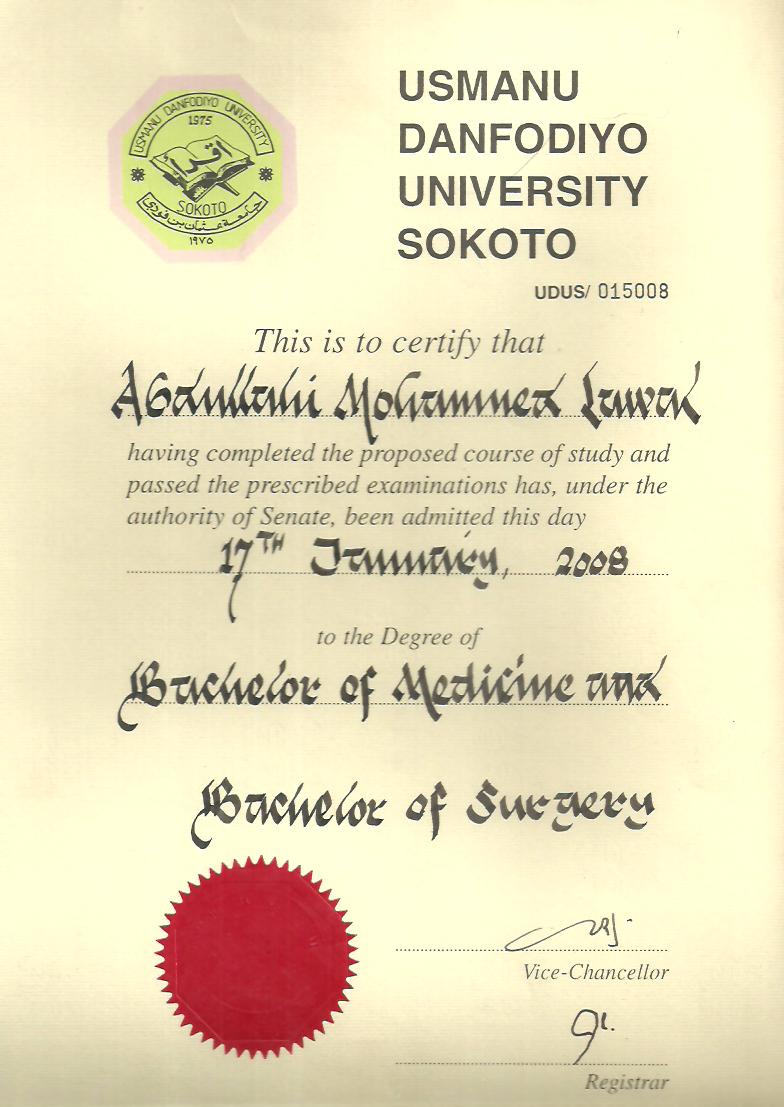 USMANU DANFODIYO UNIVERSITY
1975
اقرأ
SOKOTO
جامعة عثمان بن فودى
١٩٧٥
USMANU
DANFODIYO
UNIVERSITY
SOKOTO
UDUS/ 015008
This is to certify that
Abdullahi Mohammed Lawal
having completed the proposed course of study and
passed the prescribed examinations has, under the
authority of Senate, been admitted this day
17TH January, 2008
to the Degree of
Bachelor of Medicine and
Bachelor of Surgery
Vice-Chancellor
Registrar